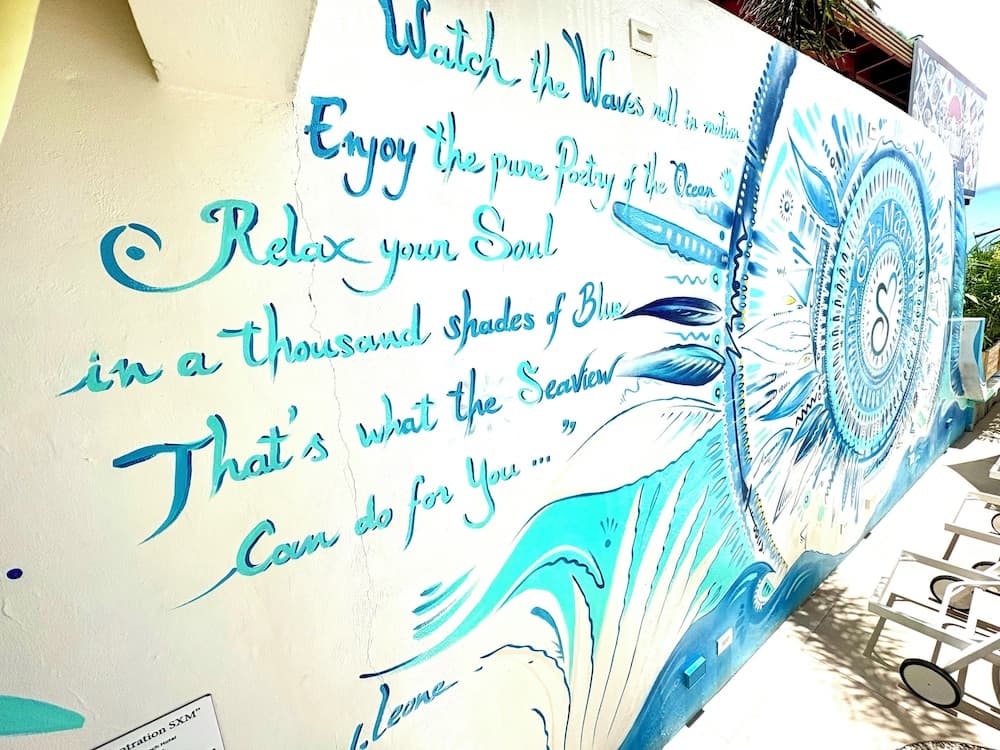 Watch the Waves roll in motion
Enjoy the pure Poetry of the Ocean
Relax your Soul
in a thousand shades of Blue
That's what the Seaview
Can do for You ... "
St. Maa
S
I. Leone
ntration SXM"
Hotel